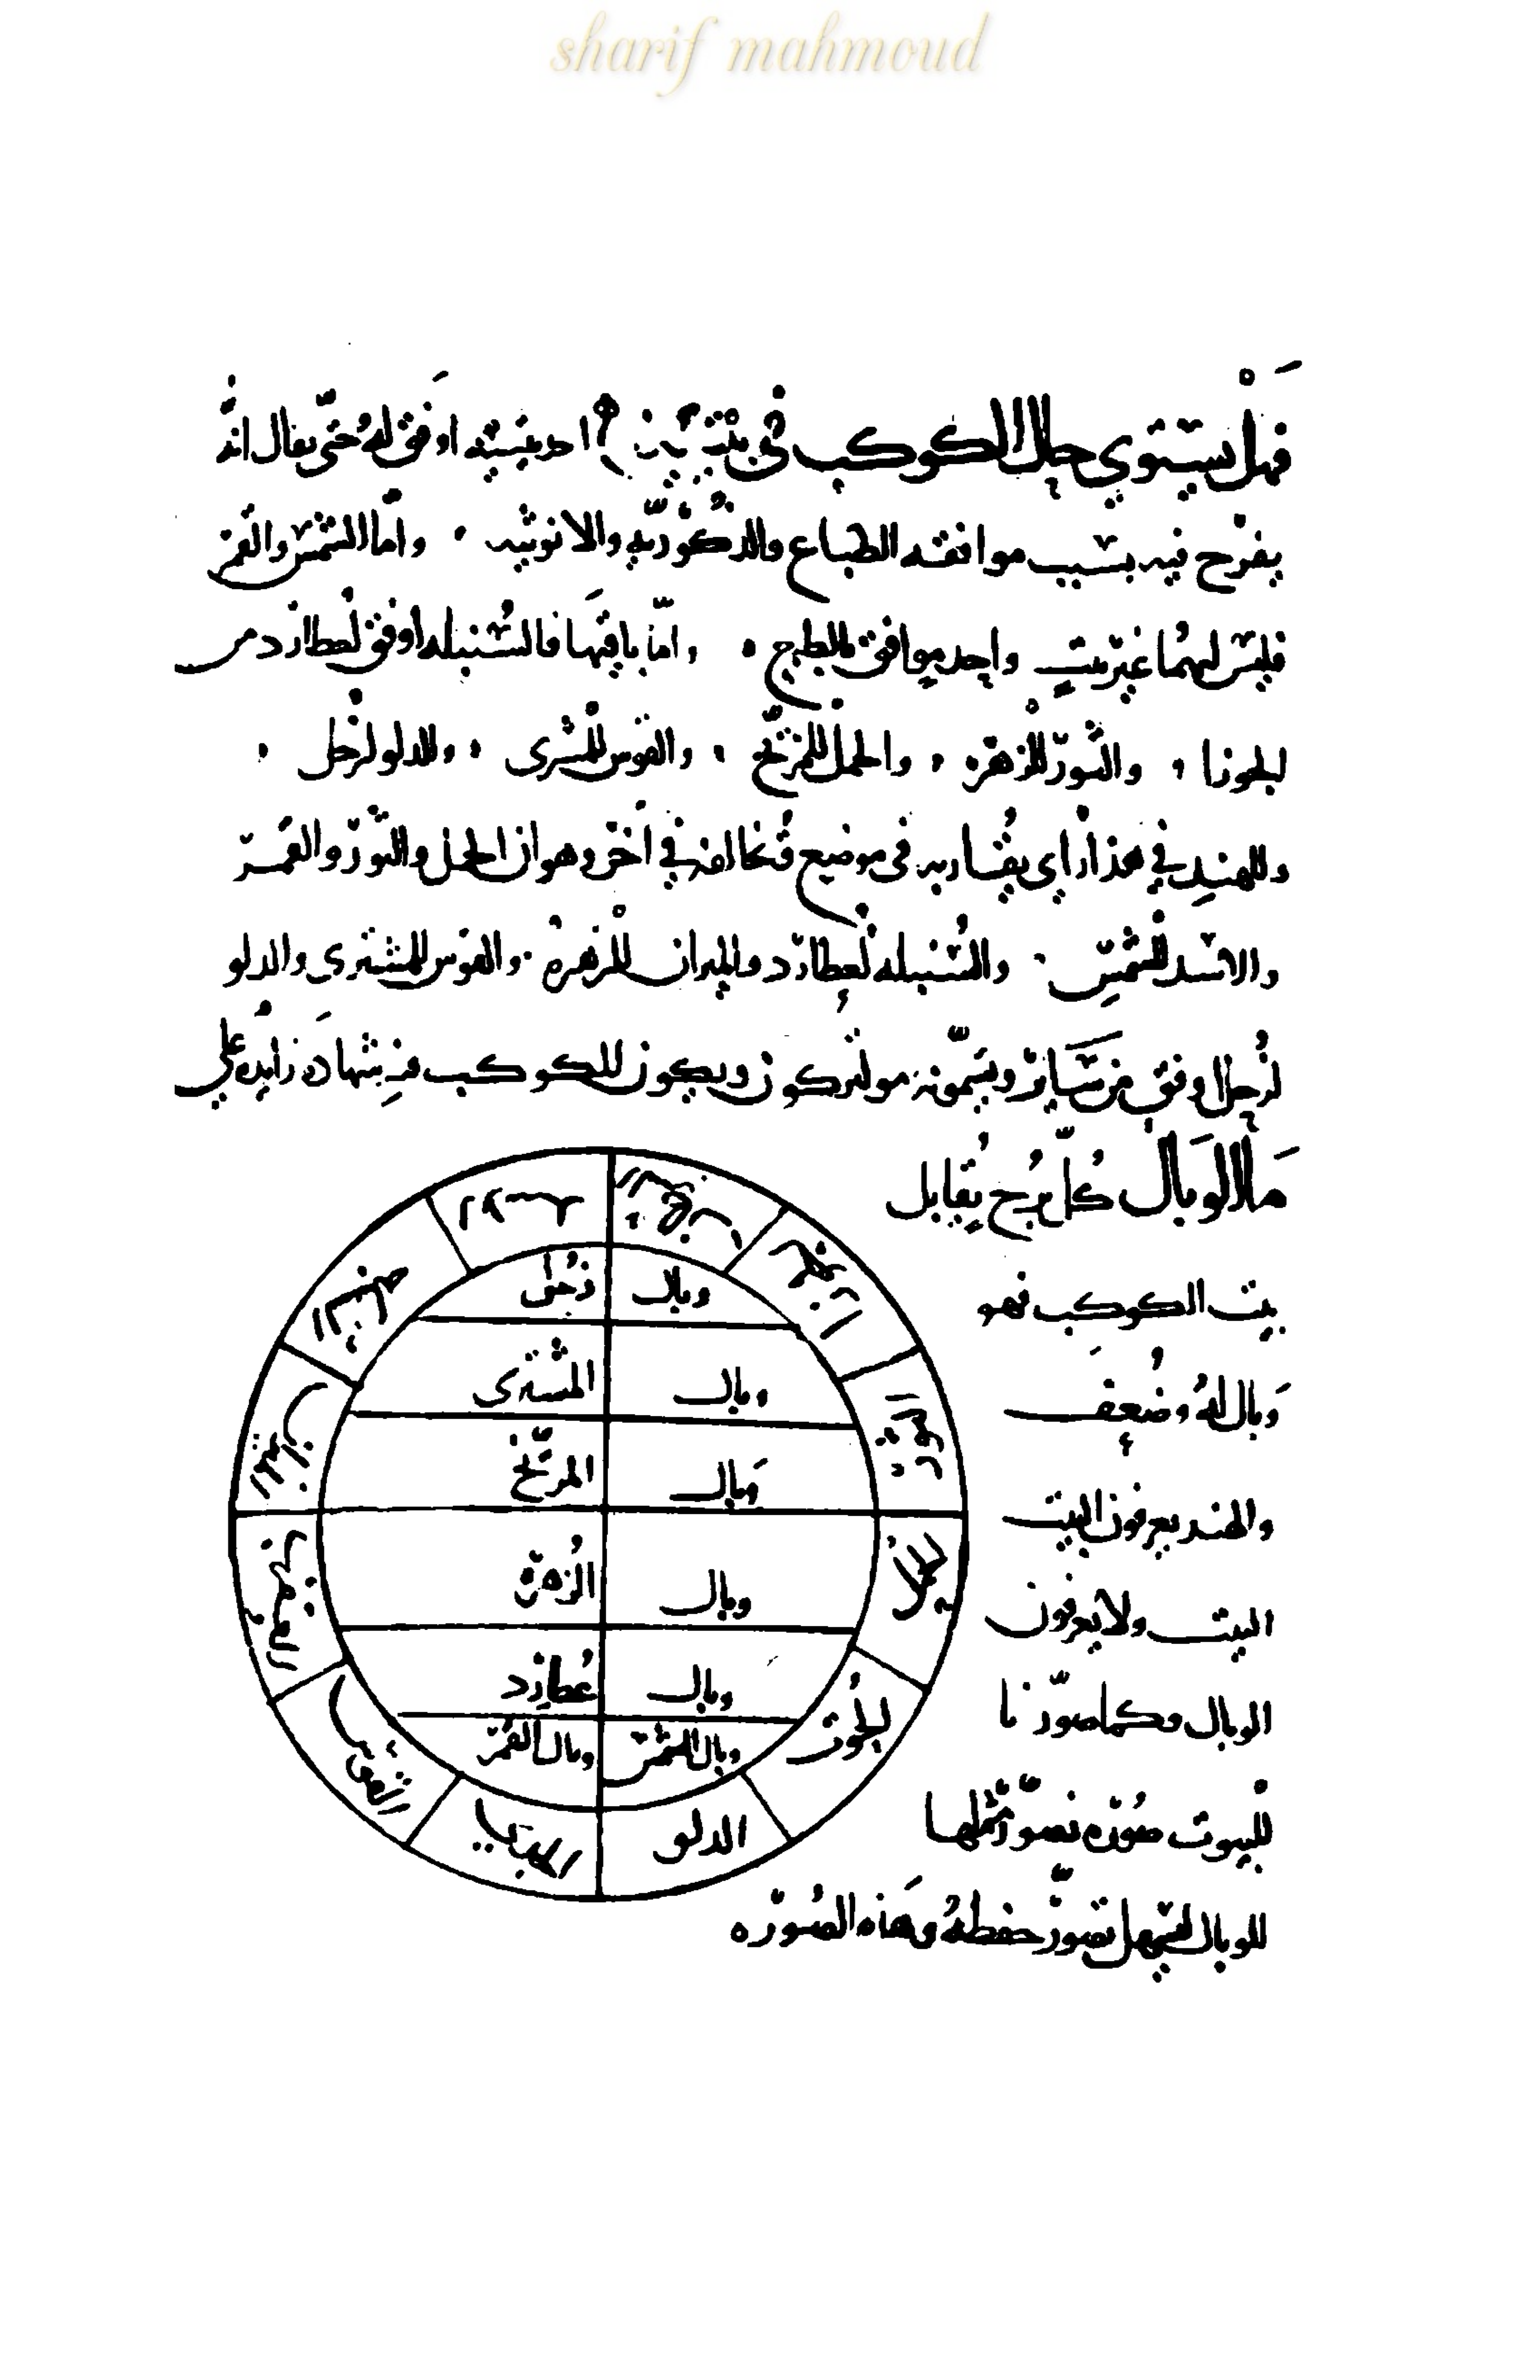 sharif mahmoud
فهل يستوي حال الكوكب في بيتيه احد بيتيه اوفق له حتى يقال انه
يفرح فيه بسبب موافقه الطباع والذكوريه والانوثيه ، واما الشمس والقمر
فليس لهما غير بيت واحد موافق للطباع ، واما باقيها فالسنبله اوفق لعطارد من
الجوزا ، والثور للزهره ، والحمل للمريخ ، والقوس للمشترى ، والدلو لزحل ،
وللهند في هذا راي يقاربه في موضع ويخالفه في اخر وهو ان الحمل والثور والقمر
والاسد للشمس . والسنبله لعطارد والميزان للزهره . والقوس للمشترى والدلو
لزحل اوفق من سايره ويسمونه مولتركون ويكون للكوكب فيه شهاده زايده على
ما الوبال كل برج يقابل
بيت الكوكب فهو
وبال له وضعف
والهند يعرفون البيت
البيت ولا يعرفون
الوبال وكما صورنا
للبيوت صوره نصور مثلها
للوبال ليسهل تصور حفظه وهذه الصوره
السرطان
الاسد
الجوزا
السنبله
الثور
الميزان
الحمل
العقرب
الحوت
القوس
الدلو
الجدي
وبال زحل
وبال المشترى
وبال المريخ
وبال الزهره
وبال عطارد
وبال الشمس وبال القمر